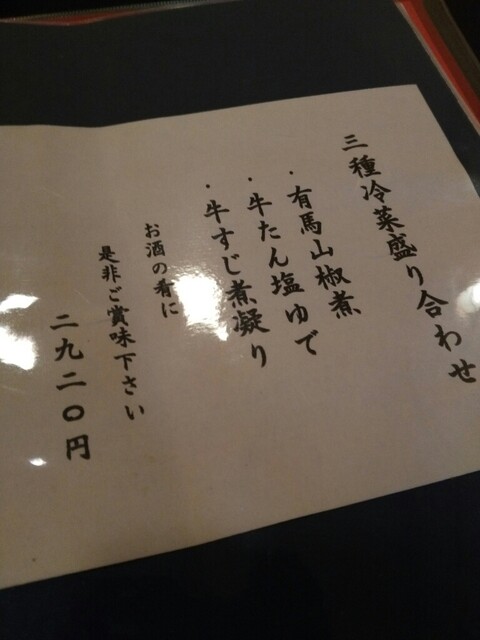 三種冷菜盛り合わせ
・有馬山椒煮
・牛たん塩ゆで
・牛すじ煮凝り
お酒の肴に
是非ご賞味下さい
二九二〇円